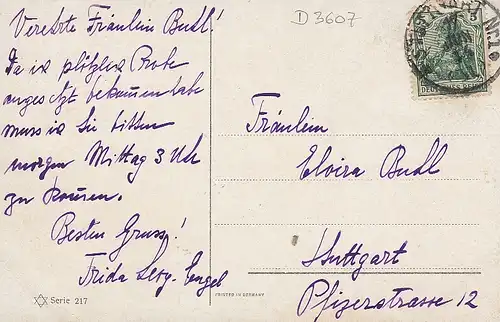 Verehrte Fräulein Budl!
Da ich plötzlich Probe
angesetzt bekommen habe
muss ich Sie bitten
morgen Mittag 3 Uhr
zu kommen.
Besten Gruss!
Frida
Serie 217
D 3607
DEUTSCHES REICH
Fräulein
Elvira Budl
Stuttgart
Pfizerstrasse 12
PRINTED IN GERMANY